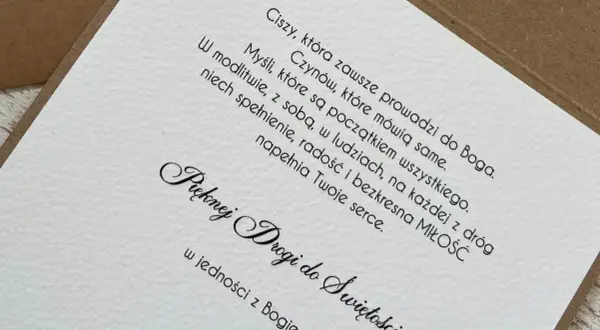 Ciszy, która zawsze prowadzi do Boga.
Czynów, które mówią same.
Myśli, które są początkiem wszystkiego.
W modlitwie, z sobą, w ludziach, na każdej z dróg
niech spełnienie, radość i bezkresna MIŁOŚĆ
napełnia Twoje serce.
Pięknej Drogi do Świętości
w jedności z